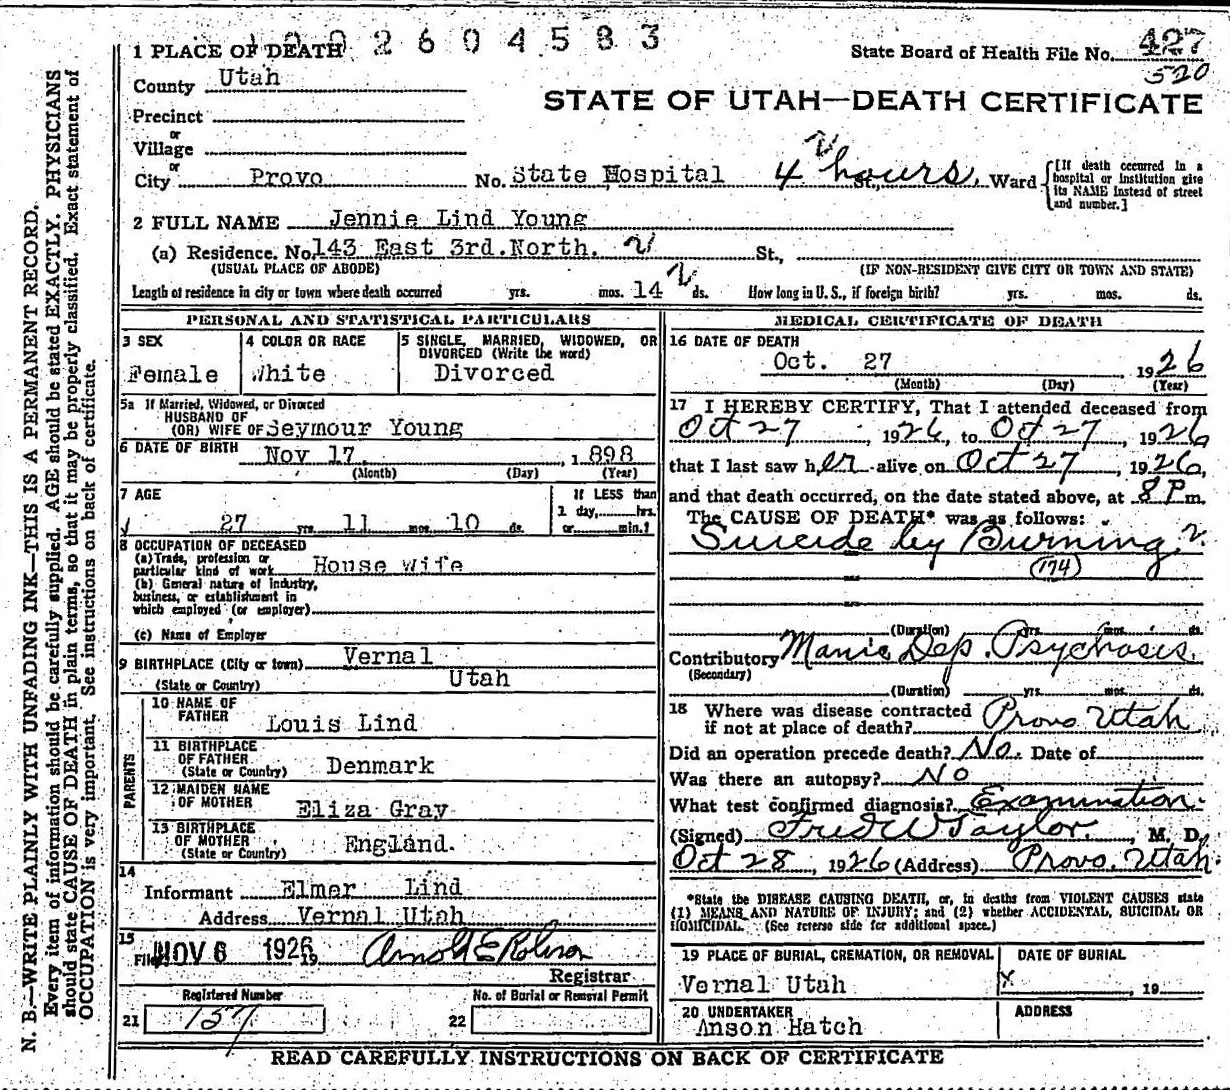 1002604583
1 PLACE OF DEATH
State Board of Health File No. 427
520
County Utah
STATE OF UTAH—DEATH CERTIFICATE
Precinct
or
Village
or
City Provo No. State Hospital 4 hours. St., Ward
[If death occurred in a hospital or institution give its NAME instead of street and number.]
2 FULL NAME Jennie Lind Young
(a) Residence. No. 143 East 3rd. North. St.,
(USUAL PLACE OF ABODE) (IF NON-RESIDENT GIVE CITY OR TOWN AND STATE)
Length of residence in city or town where death occurred yrs. mos. 14 ds. How long in U. S., if foreign birth? yrs. mos. ds.
PERSONAL AND STATISTICAL PARTICULARS
3 SEX
Female
4 COLOR OR RACE
White
5 SINGLE, MARRIED, WIDOWED, OR
DIVORCED (Write the word)
Divorced
5a If Married, Widowed, or Divorced
HUSBAND OF
(OR) WIFE OF Seymour Young
6 DATE OF BIRTH Nov 17 , 1 898
(Month) (Day) (Year)
7 AGE
27 yrs 11 mos 10 ds.
If LESS than
1 day, hrs.
or min.?
8 OCCUPATION OF DECEASED
(a) Trade, profession or
particular kind of work House wife
(b) General nature of industry,
business, or establishment in
which employed (or employer)
(c) Name of Employer
9 BIRTHPLACE (City or town) Vernal
(State or Country) Utah
PARENTS
10 NAME OF
FATHER Louis Lind
11 BIRTHPLACE
OF FATHER
(State or Country) Denmark
12 MAIDEN NAME
OF MOTHER Eliza Gray
13 BIRTHPLACE
OF MOTHER
(State or Country) England.
14
Informant Elmer Lind
Address Vernal Utah
15
Filed NOV 6 1926 19
Registrar
Registered Number
21 157
No. of Burial or Removal Permit
22
MEDICAL CERTIFICATE OF DEATH
16 DATE OF DEATH
Oct. 27 1926
(Month) (Day) (Year)
17 I HEREBY CERTIFY, That I attended deceased from
Oct 27, 1926, to Oct 27, 1926
that I last saw her alive on Oct 27, 1926,
and that death occurred, on the date stated above, at 8 P m.
The CAUSE OF DEATH* was as follows:
Suicide by Burning
(174)
(Duration) yrs. mos. ds.
Contributory Manic Dep. Psychosis.
(Secondary)
(Duration) yrs. mos. ds.
18 Where was disease contracted
if not at place of death? Provo Utah
Did an operation precede death? No. Date of
Was there an autopsy? No
What test confirmed diagnosis? Examination.
(Signed) Fred W Taylor. , M. D.
Oct 28, 1926 (Address) Provo, Utah.
*State the DISEASE CAUSING DEATH, or, in deaths from VIOLENT CAUSES state
(1) MEANS AND NATURE OF INJURY; and (2) whether ACCIDENTAL, SUICIDAL OR
HOMICIDAL. (See reverse side for additional space.)
19 PLACE OF BURIAL, CREMATION, OR REMOVAL
Vernal Utah
DATE OF BURIAL
X , 19
20 UNDERTAKER
Anson Hatch
ADDRESS
READ CAREFULLY INSTRUCTIONS ON BACK OF CERTIFICATE
N. B.—WRITE PLAINLY WITH UNFADING INK—THIS IS A PERMANENT RECORD.
Every item of information should be carefully supplied. AGE should be stated EXACTLY. PHYSICIANS
should state CAUSE OF DEATH in plain terms, so that it may be properly classified. Exact statement of
OCCUPATION is very important. See instructions on back of certificate.